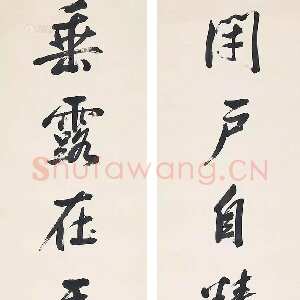 閉户自
垂露在
Shufawang.CN